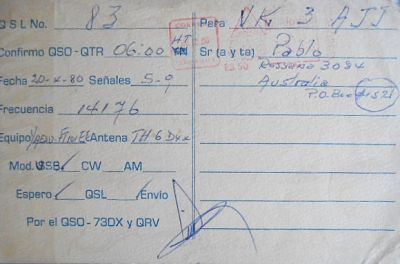 QSL No. 83
Confirmo QSO-QTR 06:00
Fecha 20-4-80 Señales 5-9
Frecuencia 14176
Equipo Antena TH6 Dxx
Mod. USB CW AM
Espero QSL Envio
Por el QSO - 73DX y QRV
Para VK 3 AJJ
Sr (a y ta) Pablo
Rossana 3084
Australia
P.O. Box